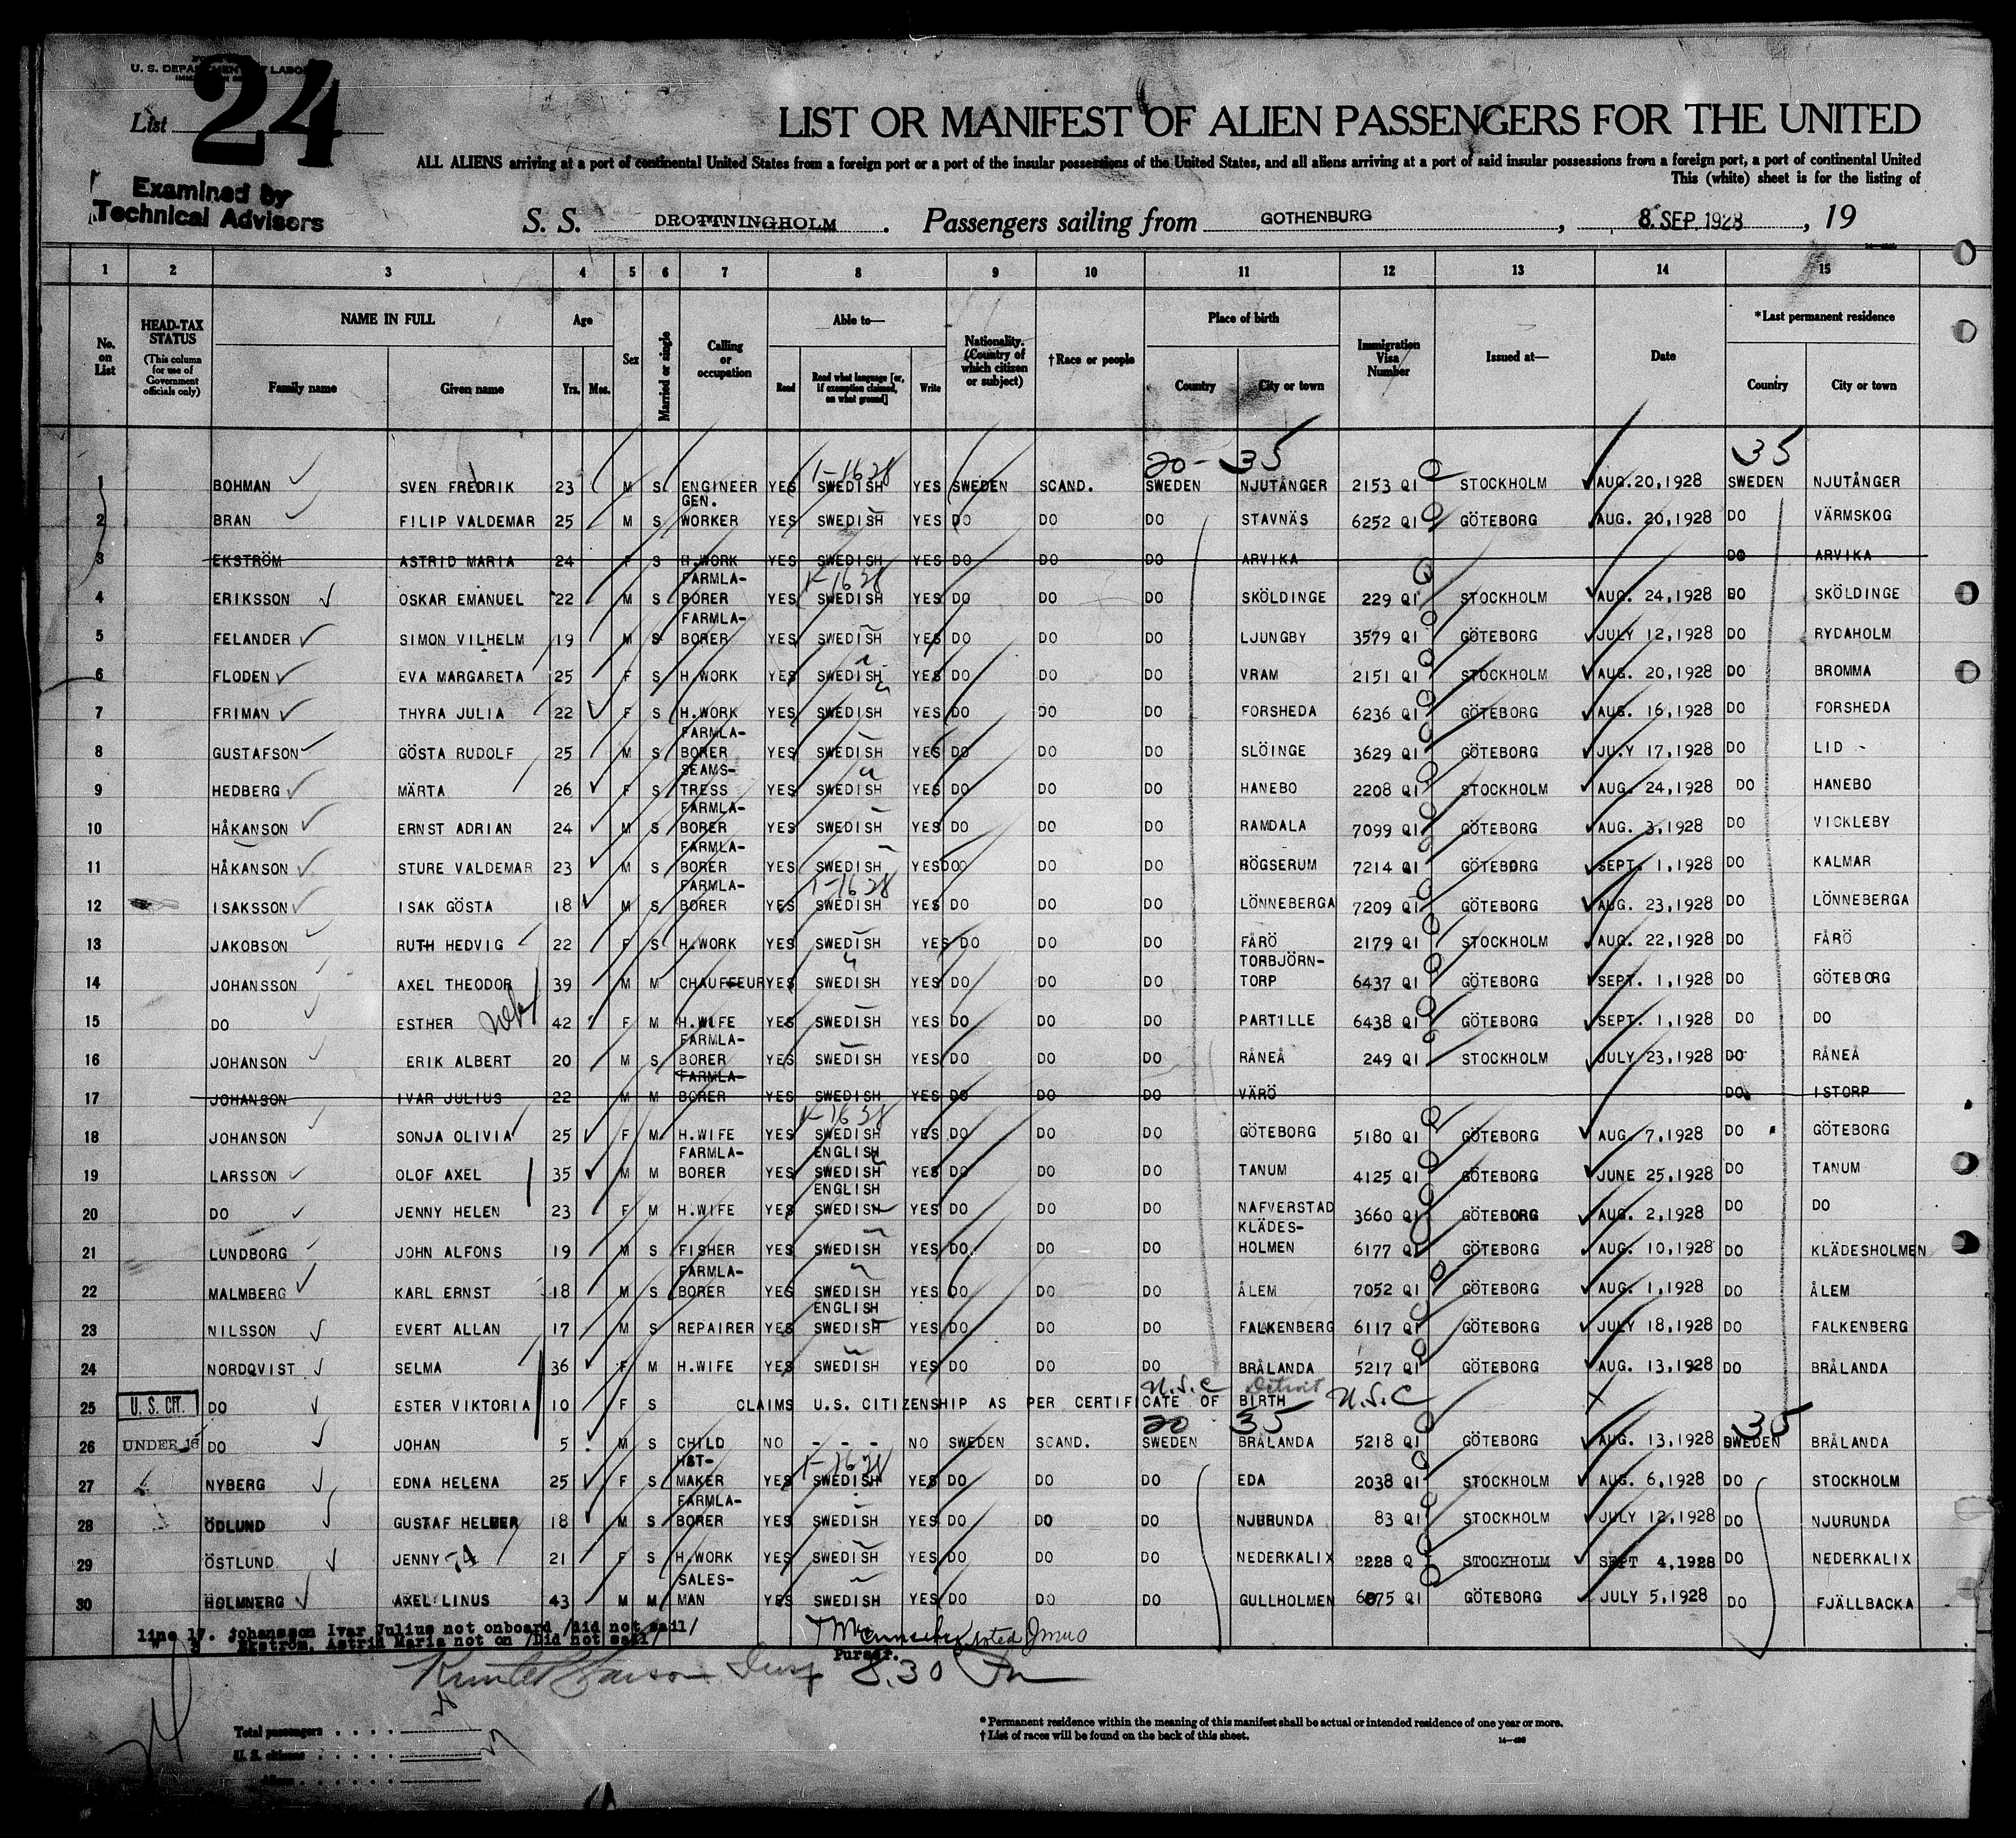 U. S. DEPARTMENT OF LABOR
List 24
LIST OR MANIFEST OF ALIEN PASSENGERS FOR THE UNITED
ALL ALIENS arriving at a port of continental United States from a foreign port or a port of the insular possessions of the United States, and all aliens arriving at a port of said insular possessions from a foreign port, a port of continental United
This (white) sheet is for the listing of
Examined by
Technical Advisors
S. S. DROTTNINGHOLM. Passengers sailing from GOTHENBURG, 8. SEP. 1928, 19
1 2 3 4 5 6 7 8 9 10 11 12 13 14 15
No. on List
HEAD-TAX STATUS (This column for use of Government officials only)
NAME IN FULL Family name Given name
Age Yrs. Mos.
Sex
Married or single
Calling or occupation
Able to— Read Read what language [or, if exemption claimed, on what ground] Write
Nationality. (Country of which citizen or subject)
†Race or people
Place of birth Country City or town
Immigration Visa Number
Issued at—
Date
*Last permanent residence Country City or town
20- 35 35
1-1628
1 BOHMAN SVEN FREDRIK 23 M S ENGINEER YES SWEDISH YES SWEDEN SCAND. SWEDEN NJUTÅNGER 2153 QI STOCKHOLM AUG.20,1928 SWEDEN NJUTÅNGER
2 BRAN FILIP VALDEMAR 25 M S GEN. WORKER YES SWEDISH YES DO DO DO STAVNÄS 6252 QI GÖTEBORG AUG. 20,1928 DO VÄRMSKOG
3 EKSTRÖM ASTRID MARIA 24 F S H.WORK YES SWEDISH YES DO DO DO ARVIKA DO ARVIKA
1-1628
4 ERIKSSON OSKAR EMANUEL 22 M S FARMLA-BORER YES SWEDISH YES DO DO DO SKÖLDINGE 229 QI STOCKHOLM AUG. 24,1928 DO SKÖLDINGE
5 FELANDER SIMON VILHELM 19 M S FARMLA-BORER YES SWEDISH YES DO DO DO LJUNGBY 3579 QI GÖTEBORG JULY 12,1928 DO RYDAHOLM
6 FLODEN EVA MARGARETA 25 F S H.WORK YES SWEDISH YES DO DO DO VRAM 2151 QI STOCKHOLM AUG. 20,1928 DO BROMMA
7 FRIMAN THYRA JULIA 22 F S H.WORK YES SWEDISH YES DO DO DO FORSHEDA 6236 QI GÖTEBORG AUG. 16,1928 DO FORSHEDA
8 GUSTAFSON GÖSTA RUDOLF 25 M S FARMLA-BORER YES SWEDISH YES DO DO DO SLÖINGE 3629 QI GÖTEBORG JULY 17,1928 DO LID
9 HEDBERG MÄRTA 26 F S SEAMS-TRESS YES SWEDISH YES DO DO DO HANEBO 2208 QI STOCKHOLM AUG. 24,1928 DO HANEBO
10 HÅKANSON ERNST ADRIAN 24 M S FARMLA-BORER YES SWEDISH YES DO DO DO RAMDALA 7099 QI GÖTEBORG AUG. 3,1928 DO VICKLEBY
11 HÅKANSON STURE VALDEMAR 23 M S FARMLA-BORER YES SWEDISH YES DO DO DO HÖGSERUM 7214 QI GÖTEBORG SEPT. 1,1928 DO KALMAR
1-1628
12 ISAKSSON ISAK GÖSTA 18 M S FARMLA-BORER YES SWEDISH YES DO DO DO LÖNNEBERGA 7209 QI GÖTEBORG AUG. 23,1928 DO LÖNNEBERGA
13 JAKOBSON RUTH HEDVIG 22 F S H.WORK YES SWEDISH YES DO DO DO FÅRÖ 2179 QI STOCKHOLM AUG. 22,1928 DO FÅRÖ
14 JOHANSSON AXEL THEODOR 39 M M CHAUFFEUR YES SWEDISH YES DO DO DO TORBJÖRN-TORP 6437 QI GÖTEBORG SEPT. 1,1928 DO GÖTEBORG
15 DO ESTHER 42 F M H.WIFE YES SWEDISH YES DO DO DO PARTILLE 6438 QI GÖTEBORG SEPT. 1,1928 DO DO
16 JOHANSON ERIK ALBERT 20 M S FARMLA-BORER YES SWEDISH YES DO DO DO RÅNEÅ 249 QI STOCKHOLM JULY 23,1928 DO RÅNEÅ
17 JOHANSON IVAR JULIUS 22 M M FARMLA-BORER YES SWEDISH YES DO DO DO VÄRÖ DO ISTORP
1-1628
18 JOHANSON SONJA OLIVIA 25 F M H.WIFE YES SWEDISH YES DO DO DO GÖTEBORG 5180 QI GÖTEBORG AUG. 7,1928 DO GÖTEBORG
19 LARSSON OLOF AXEL 35 M M FARMLA-BORER YES ENGLISH SWEDISH YES DO DO DO TANUM 4125 QI GÖTEBORG JUNE 25,1928 DO TANUM
20 DO JENNY HELEN 23 F M H.WIFE YES ENGLISH SWEDISH YES DO DO DO NAFVERSTAD 3660 QI GÖTEBORG AUG. 2,1928 DO DO
21 LUNDBORG JOHN ALFONS 19 M S FISHER YES SWEDISH YES DO DO DO KLÄDES-HOLMEN 6177 QI GÖTEBORG AUG. 10,1928 DO KLÄDESHOLMEN
22 MALMBERG KARL ERNST 18 M S FARMLA-BORER YES SWEDISH YES DO DO DO ÅLEM 7052 QI GÖTEBORG AUG. 1,1928 DO ÅLEM
23 NILSSON EVERT ALLAN 17 M S REPAIRER YES ENGLISH SWEDISH YES DO DO DO FALKENBERG 6117 QI GÖTEBORG JULY 18,1928 DO FALKENBERG
24 NORDQVIST SELMA 36 F M H.WIFE YES SWEDISH YES DO DO DO BRÅLANDA 5217 QI GÖTEBORG AUG. 13,1928 DO BRÅLANDA
U.S.C Detroit U.S.C
25 U. S. CIT. DO ESTER VIKTORIA 10 F S CLAIMS U.S. CITIZENSHIP AS PER CERTIFICATE OF BIRTH
20 35 35
26 UNDER 16 DO JOHAN 5 M S CHILD NO - - - NO SWEDEN SCAND. SWEDEN BRÅLANDA 5218 QI GÖTEBORG AUG. 13,1928 SWEDEN BRÅLANDA
1-1628
27 NYBERG EDNA HELENA 25 F S HAT-MAKER YES SWEDISH YES DO DO DO EDA 2038 QI STOCKHOLM AUG. 6,1928 DO STOCKHOLM
28 ÖDLUND GUSTAF HELMER 18 M S FARMLA-BORER YES SWEDISH YES DO DO DO NJURUNDA 83 QI STOCKHOLM JULY 12,1928 DO NJURUNDA
29 ÖSTLUND JENNY 21 F S H.WORK YES SWEDISH YES DO DO DO NEDERKALIX 2228 Q STOCKHOLM SEPT 4,1928 DO NEDERKALIX
30 HOLMNERG AXEL LINUS 43 M M SALES-MAN YES SWEDISH YES DO DO DO GULLHOLMEN 6075 QI GÖTEBORG JULY 5,1928 DO FJÄLLBACKA
line 17. johansson Ivar Julius not onboard /did not sail/
3 Ekström, Astrid Maria not on /Did not sail/
Purser.
Insp 8.30 Pm
Total passengers
U. S. citizens
Aliens
* Permanent residence within the meaning of this manifest shall be actual or intended residence of one year or more.
† List of races will be found on the back of this sheet.
14—430